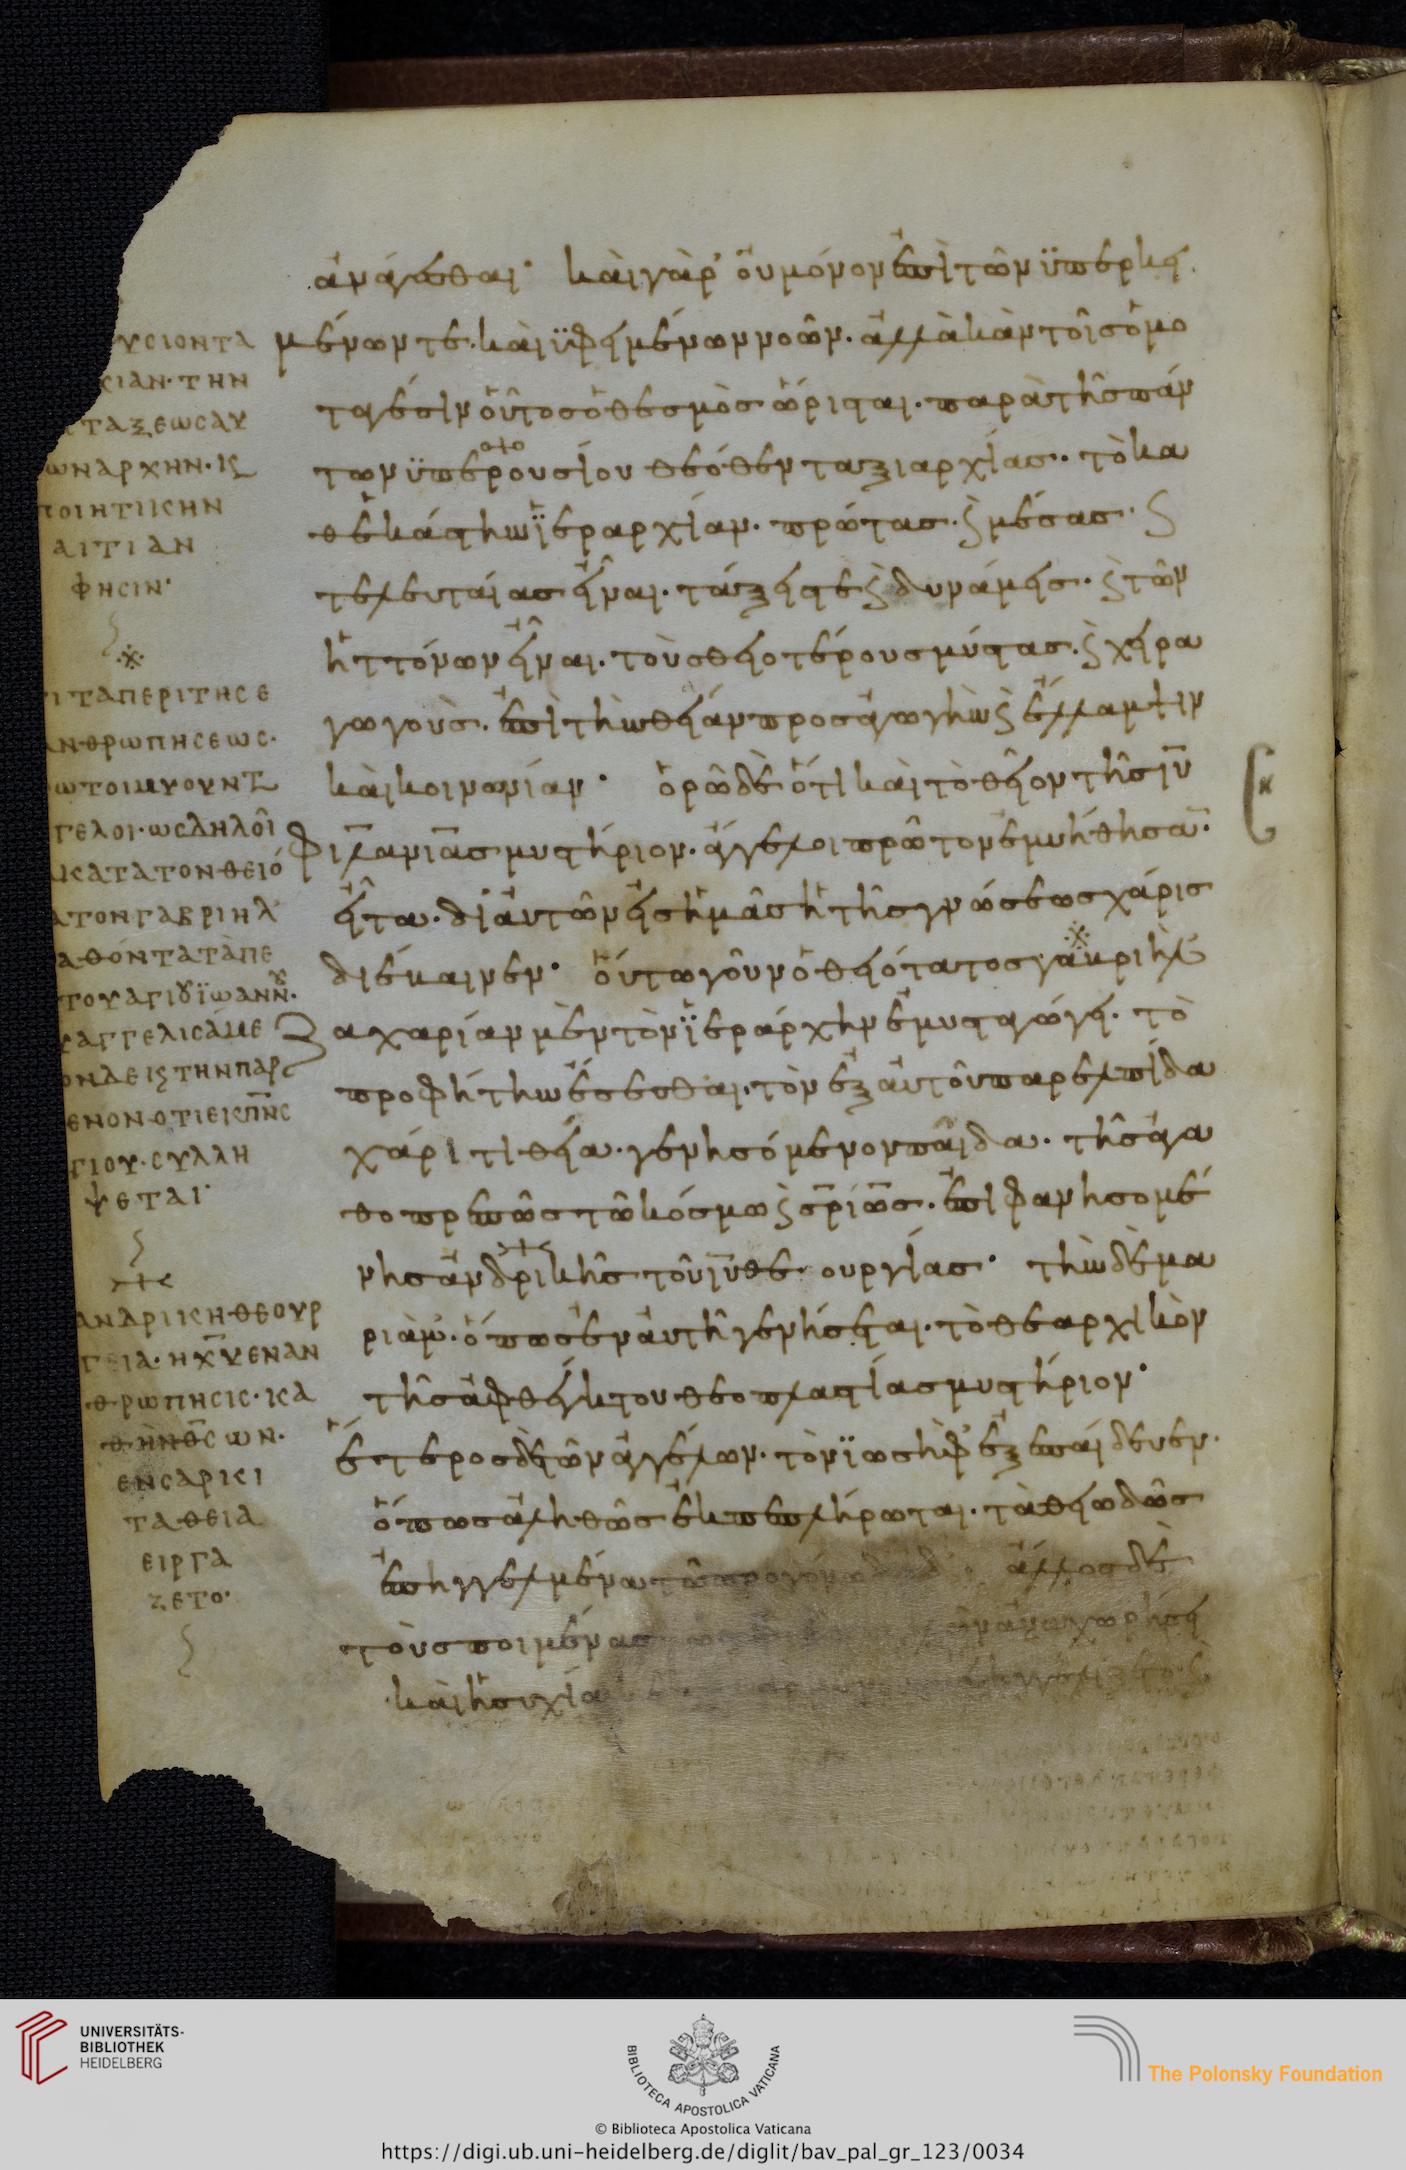 ἀνάγεσθαι· καὶ γὰρ οὐ μόνον ἐπὶ τῶν ϋπερκει
μένων τε. καὶ ϋφειμένων νοῶν. ἀλλὰ κἀν τοῖς ὁμο
ταγέσιν οὗτος ὁ θεσμὸς ὥρισται. παρὰ τῆς πάν
των ϋπερουσίου θεόθεν ταξιαρχίας. τὸ κα
θ ἑκάστην ϊεραρχίαν. πρώτας. ϛ μέσας. ϛ
τελευταίας εἶναι. τάξεις τε ϛ δυνάμεις. ϛ τῶν
ἡττόνων εἶναι. τοὺς θειοτέρους μύστας. ϛ χειρα
γωγοὺς. ἐπὶ τὴν θείαν προσαγωγὴν ϛ ἔλλαμψιν
καὶ κοινωνίαν· ὁρῶ δὲ ὅτι καὶ τὸ θεῖον τῆς ιυ
φιλανιας μυστήριον. ἄγγελοι πρῶτον ἐμυήθησα.
εἶτα. δι αὐτῶν εἰς ἡμᾶς ἡ τῆς γνώσεως χάρις
διέβαινεν· οὕτω γοῦν ὁ θειότατος γαβριὴλ
ζαχαρίαν μὲν τὸν ϊεράρχην ἐμυσταγώγει. τὸ
προφήτην ἔσεσθαι. τὸν ἐξ αὐτοῦ παρ ελπίδα
χάριτι θεία. γενησόμενον παῖδα. τῆς ἀγα
θοπρεπῶς τῶ κόσμω ϛ σριως. ἐπιφανησομέ
νης ἀνδρικῆς τοῦ ιυ θεουργίας· τὴν δὲ μα
ριὰμ. ὅπως ἐν αὐτῆ γενήσεται. τὸ θεαρχικὸν
τῆς ἀφθέγκτου θεοπλαστίας μυστήριον·
ἕτερος δὲ τῶν ἀγγέλων. τὸν ϊωσὴφ ἐξεπαίδευεν.
ὅπως ἀληθῶς ἐκπεπλήρωται. τὰ θειωδῶς
ἐπηγγελμένα τῶ προγόνω δαδ· ἄλλος δὲ
τοὺς ποιμένας ἀναχωρήσει
καὶ ἡσυχία
ΥϹΙΟΝΤΑ
ϹΙΑΝ· ΤΗΝ
ΤΑΞΕΩϹ ΑΥ
ΩΝ ΑΡΧΗΝ· Κ
ΠΟΙΗΤΙΚΗΝ
ΑΙΤΙΑΝ
ΦΗϹΙΝ·
ΤΑ ΠΕΡΙ ΤΗϹ Ε
ΑΝΘΡΩΠΗϹΕΩϹ·
ΩΤΟΙ ΜΥΟΥΝΤ
ΓΕΛΟΙ· ΩϹ ΔΗΛΟΙ
ΚΑΤΑ ΤΟΝ ΘΕΙΟ
ΤΟΝ ΓΑΒΡΙΗΛ
ΑΘΟΝΤΑ ΤΑ ΠΕ
ΤΟΥ ΑΓΙΟΥ ΪΩΑΝΝ.
ΑΓΓΕΛΙϹΑΜΕ
ΟΝ ΔΕ ΕΙϹ ΤΗΝ ΠΑΡ
ΕΝΟΝ ΟΤΙ ΕΚ ΠΝϹ
ΓΙΟΥ· ϹΥΛΛΗ
ΨΕΤΑΙ·
ΑΝΔΡΙΚΗ ΘΕΟΥΡ
ΓΕΙΑ· Η ΧΥ ΕΝΑΝ
ΘΡΩΠΗϹΙϹ· ΚΑ
Θ ΗΝ ΘϹ ΩΝ·
ΕΝ ϹΑΡΚΙ
ΤΑ ΘΕΙΑ
ΕΙΡΓΑ
ΖΕΤΟ·
UNIVERSITÄTS-
BIBLIOTHEK
HEIDELBERG
BIBLIOTECA APOSTOLICA VATICANA
The Polonsky Foundation
© Biblioteca Apostolica Vaticana
https://digi.ub.uni-heidelberg.de/diglit/bav_pal_gr_123/0034